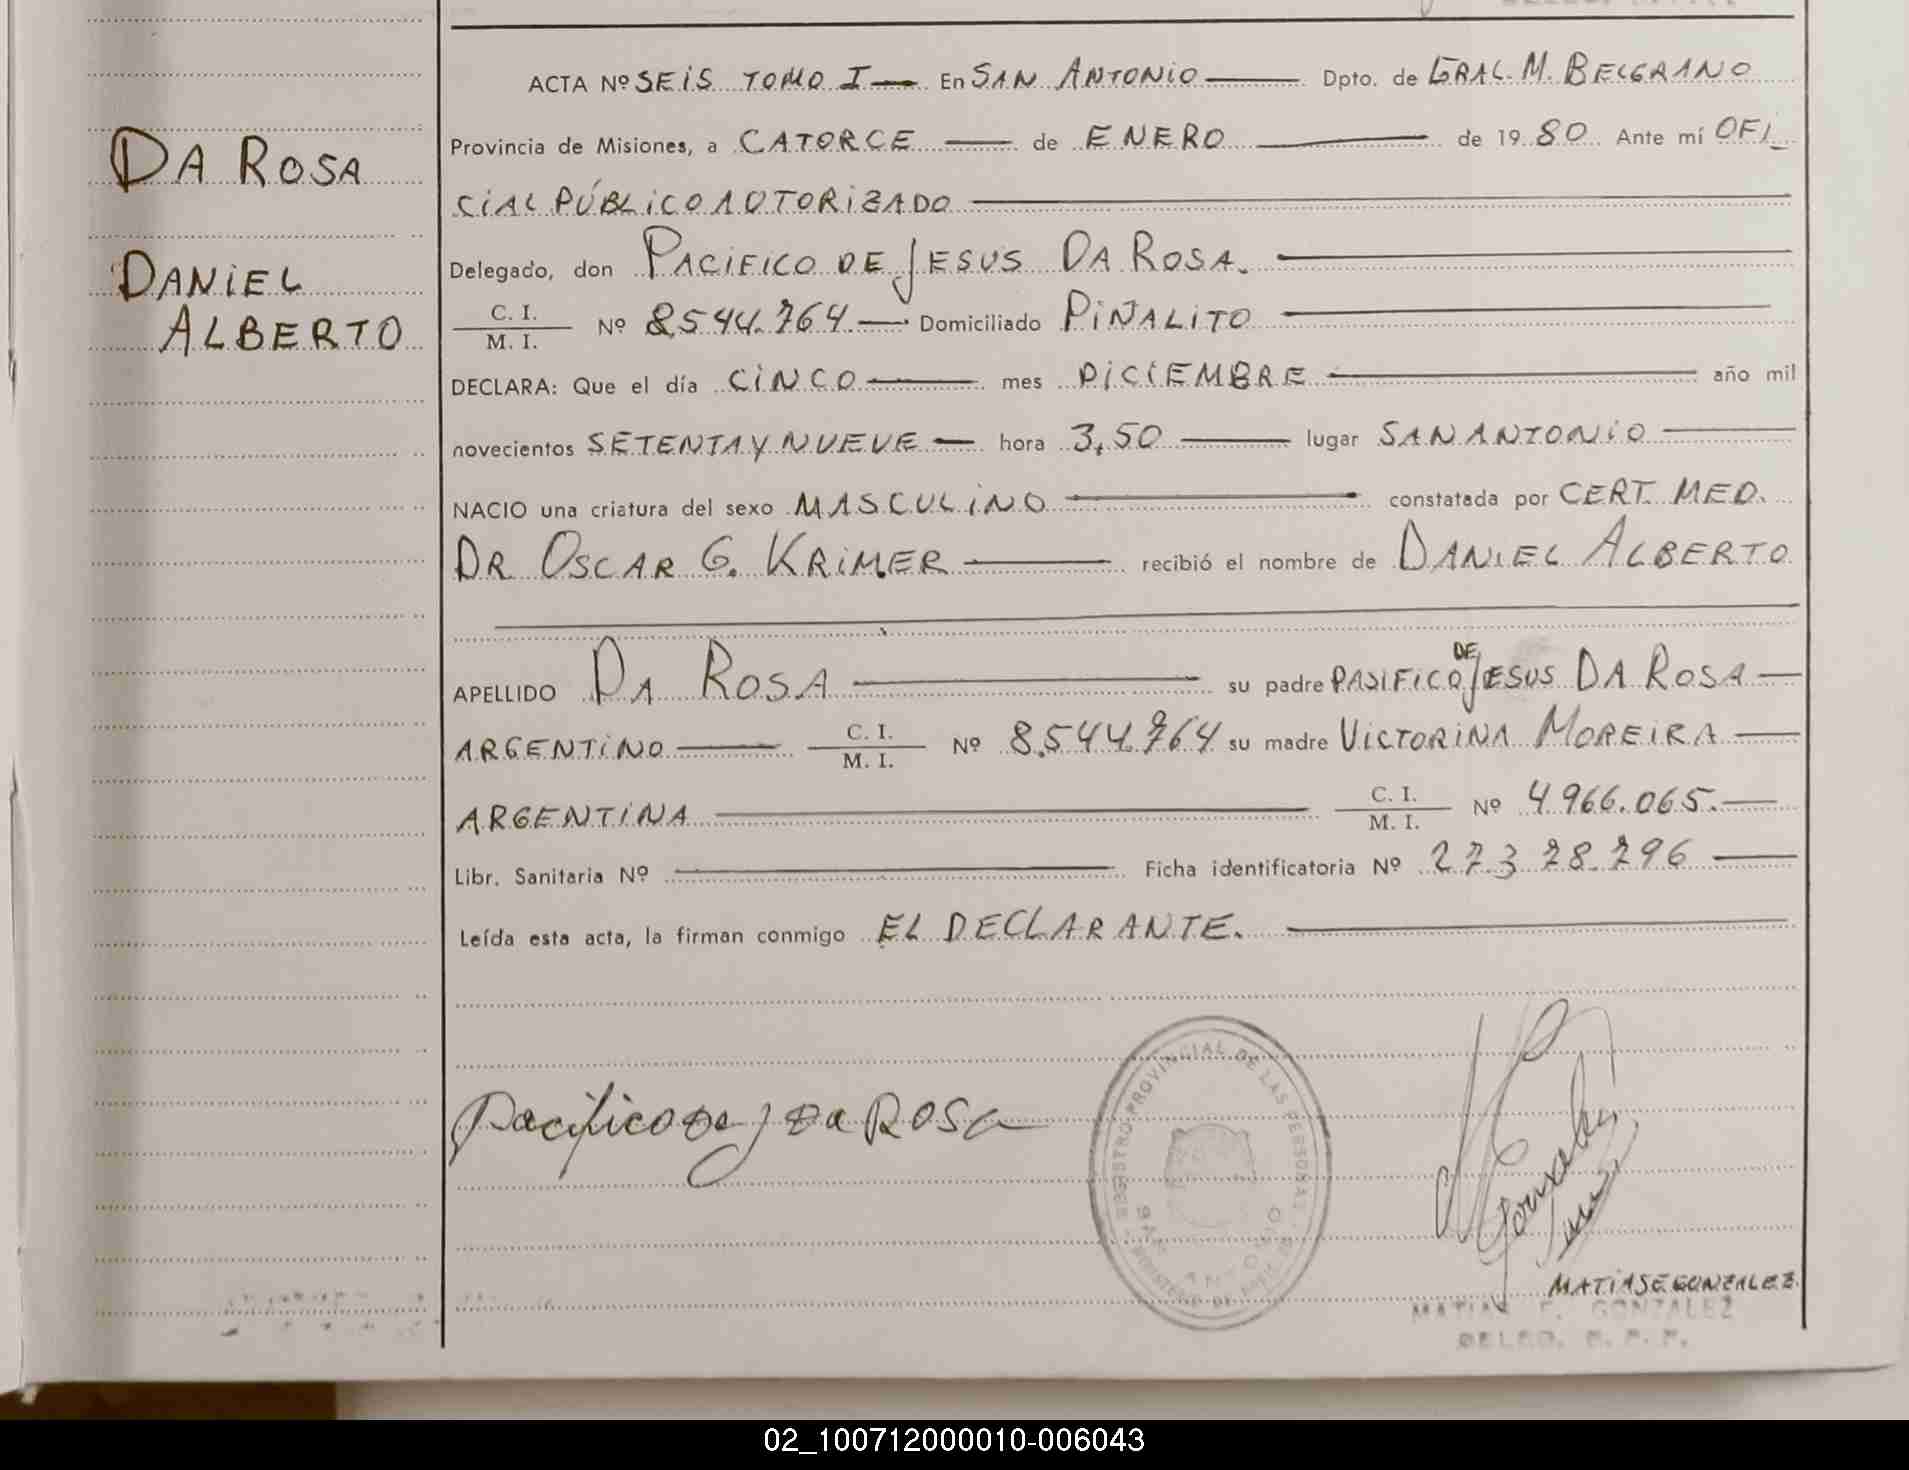 DA ROSA
DANIEL
ALBERTO
ACTA Nº SEIS TOMO I — En SAN ANTONIO — Dpto. de GRAL. M. BELGRANO
Provincia de Misiones, a CATORCE — de ENERO — de 1980 Ante mí OFI_
CIAL PÚBLICO AUTORIZADO —
Delegado, don PACIFICO DE JESUS DA ROSA. —
C. I.
M. I. Nº 8.544.764.— Domiciliado PIÑALITO —
DECLARA: Que el día CINCO — mes DICIEMBRE — año mil
novecientos SETENTA Y NUEVE — hora 3,50 — lugar SAN ANTONIO —
NACIO una criatura del sexo MASCULINO — constatada por CERT. MED.
DR OSCAR G. KRIMER — recibió el nombre de DANIEL ALBERTO
APELLIDO DA ROSA — su padre PASIFICO DE JESUS DA ROSA —
ARGENTINO — C. I. M. I. Nº 8.544.764 su madre VICTORINA MOREIRA —
ARGENTINA — C. I. M. I. Nº 4.966.065.—
Libr. Sanitaria Nº — Ficha identificatoria Nº 27.378.796 —
Leída esta acta, la firman conmigo EL DECLARANTE. —
Pacifico De J Da ROSA
REGISTRO PROVINCIAL DE LAS PERSONAS
SAN ANTONIO
MATIAS E GONZALEZ
MATIAS E. GONZALEZ
DELEG. R. P. P.
02_100712000010-006043